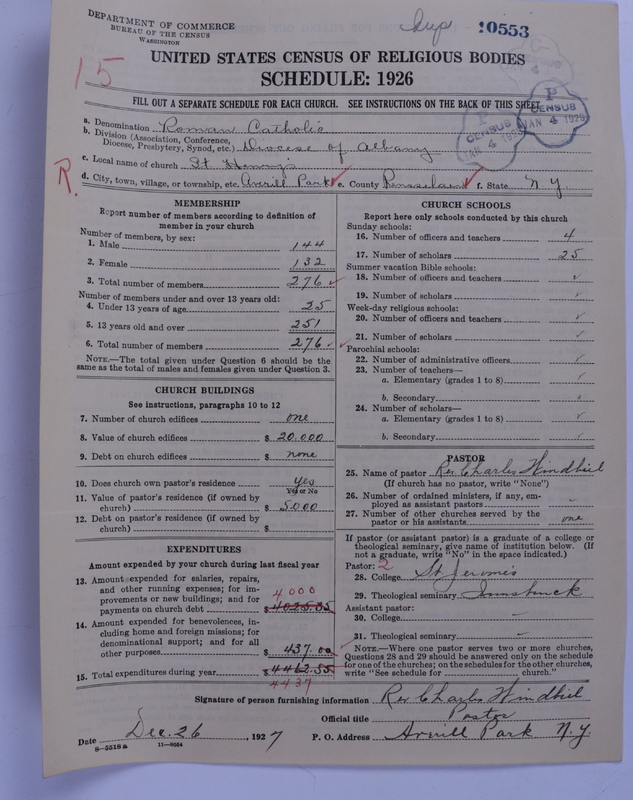 DEPARTMENT OF COMMERCE
BUREAU OF THE CENSUS
WASHINGTON
Dup
10553
15
UNITED STATES CENSUS OF RELIGIOUS BODIES
SCHEDULE: 1926
FILL OUT A SEPARATE SCHEDULE FOR EACH CHURCH. SEE INSTRUCTIONS ON THE BACK OF THIS SHEET
P CENSUS JAN 4
P CENSUS JAN 4 1928
a. Denomination Roman Catholic
b. Division (Association, Conference, Diocese, Presbytery, Synod, etc.) Diocese of Albany
c. Local name of church St. Henry's
R.
d. City, town, village, or township, etc. Averill Park e. County Rensselaer f. State N. Y.
MEMBERSHIP
Report number of members according to definition of
member in your church
Number of members, by sex:
1. Male 144
2. Female 132
3. Total number of members 276
Number of members under and over 13 years old:
4. Under 13 years of age 25
5. 13 years old and over 251
6. Total number of members 276
NOTE.—The total given under Question 6 should be
same as the total of males and females given under Question 3.
CHURCH BUILDINGS
See instructions, paragraphs 10 to 12
7. Number of church edifices one
8. Value of church edifices $ 20.000
9. Debt on church edifices $ none
10. Does church own pastor's residence yes
Yes or No
11. Value of pastor's residence (if owned by
church) $ 5000
12. Debt on pastor's residence (if owned by
church) $
EXPENDITURES
Amount expended by church during last fiscal year
13. Amount expended for salaries, repairs,
and other running expenses; for im-
provements or new buildings; and for
payments on church debt $ 4025.55
4000
14. Amount expended for benevolences, in-
cluding home and foreign missions; for
denominational support; and for all
other purposes $ 437.00
15. Total expenditures during year $ 4462.55
4437
CHURCH SCHOOLS
Report here only schools conducted by this church
Sunday schools:
16. Number of officers and teachers 4
17. Number of scholars 25
Summer vacation Bible schools:
18. Number of officers and teachers
19. Number of scholars
Week-day religious schools:
20. Number of officers and teachers
21. Number of scholars
Parochial schools:
22. Number of administrative officers
23. Number of teachers—
a. Elementary (grades 1 to 8)
b. Secondary
24. Number of scholars—
a. Elementary (grades 1 to 8)
b. Secondary
PASTOR
25. Name of pastor Rev Charles Windbiel
(If church has no pastor, write "None")
26. Number of ordained ministers, if any, em-
ployed as assistant pastors –
27. Number of other churches served by the
pastor or his assistants one
If pastor (or assistant pastor) is a graduate of a college or
theological seminary, give name of institution below. (If
not a graduate, write "No" in the space indicated.)
Pastor: 2
28. College St Jerome's
29. Theological seminary Innsbruck
Assistant pastor:
30. College –
31. Theological seminary –
NOTE.—Where one pastor serves two or more churches,
Questions 28 and 29 should be answered only on the schedule
for one of the churches; on the schedules for the other churches,
write "See schedule for church."
Signature of person furnishing information Rev Charles Windbiel
Official title Pastor
Date Dec. 26, 1927 P. O. Address Averill Park N.Y.
8—5518a 11—9054